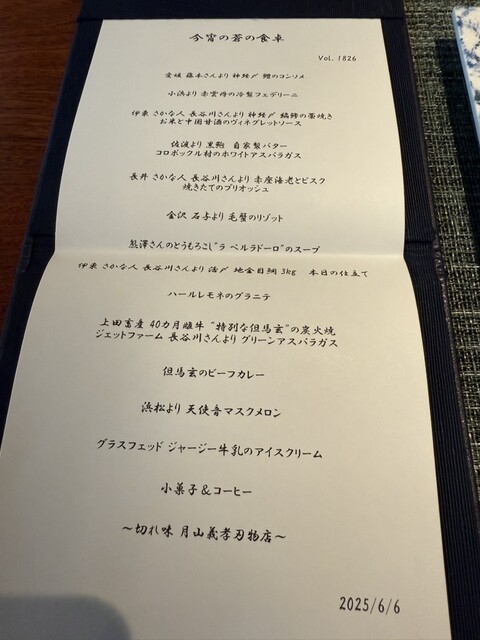 今宵の蒼の食卓
Vol. 1826
愛媛 藤本さんより神経〆 鱧のコンソメ
小浜より 赤雲丹の冷製フェデリーニ
伊東 さかな人 長谷川さんより神経〆 縞鯵の藁焼き
お米と中国甘酒のヴィネグレットソース
佐渡より 黒鮑 自家製バター
コロボックル村のホワイトアスパラガス
長井 さかな人 長谷川さんより 赤座海老とビスク
焼きたてのブリオッシュ
金沢 石与より 毛蟹のリゾット
熊澤さんのとうもろこし"ラ ベルラドーロ"のスープ
伊東 さかな人 長谷川さんより 活〆 地金目鯛 3kg 本日の仕立て
ハールレモネのグラニテ
上田畜産 40カ月雌牛 "特別な但馬玄"の炭火焼
ジェットファーム 長谷川さんより グリーンアスパラガス
但馬玄のビーフカレー
浜松より 天使音マスクメロン
グラスフェッド ジャージー牛乳のアイスクリーム
小菓子&コーヒー
～切れ味 月山義孝刃物店～
2025/6/6